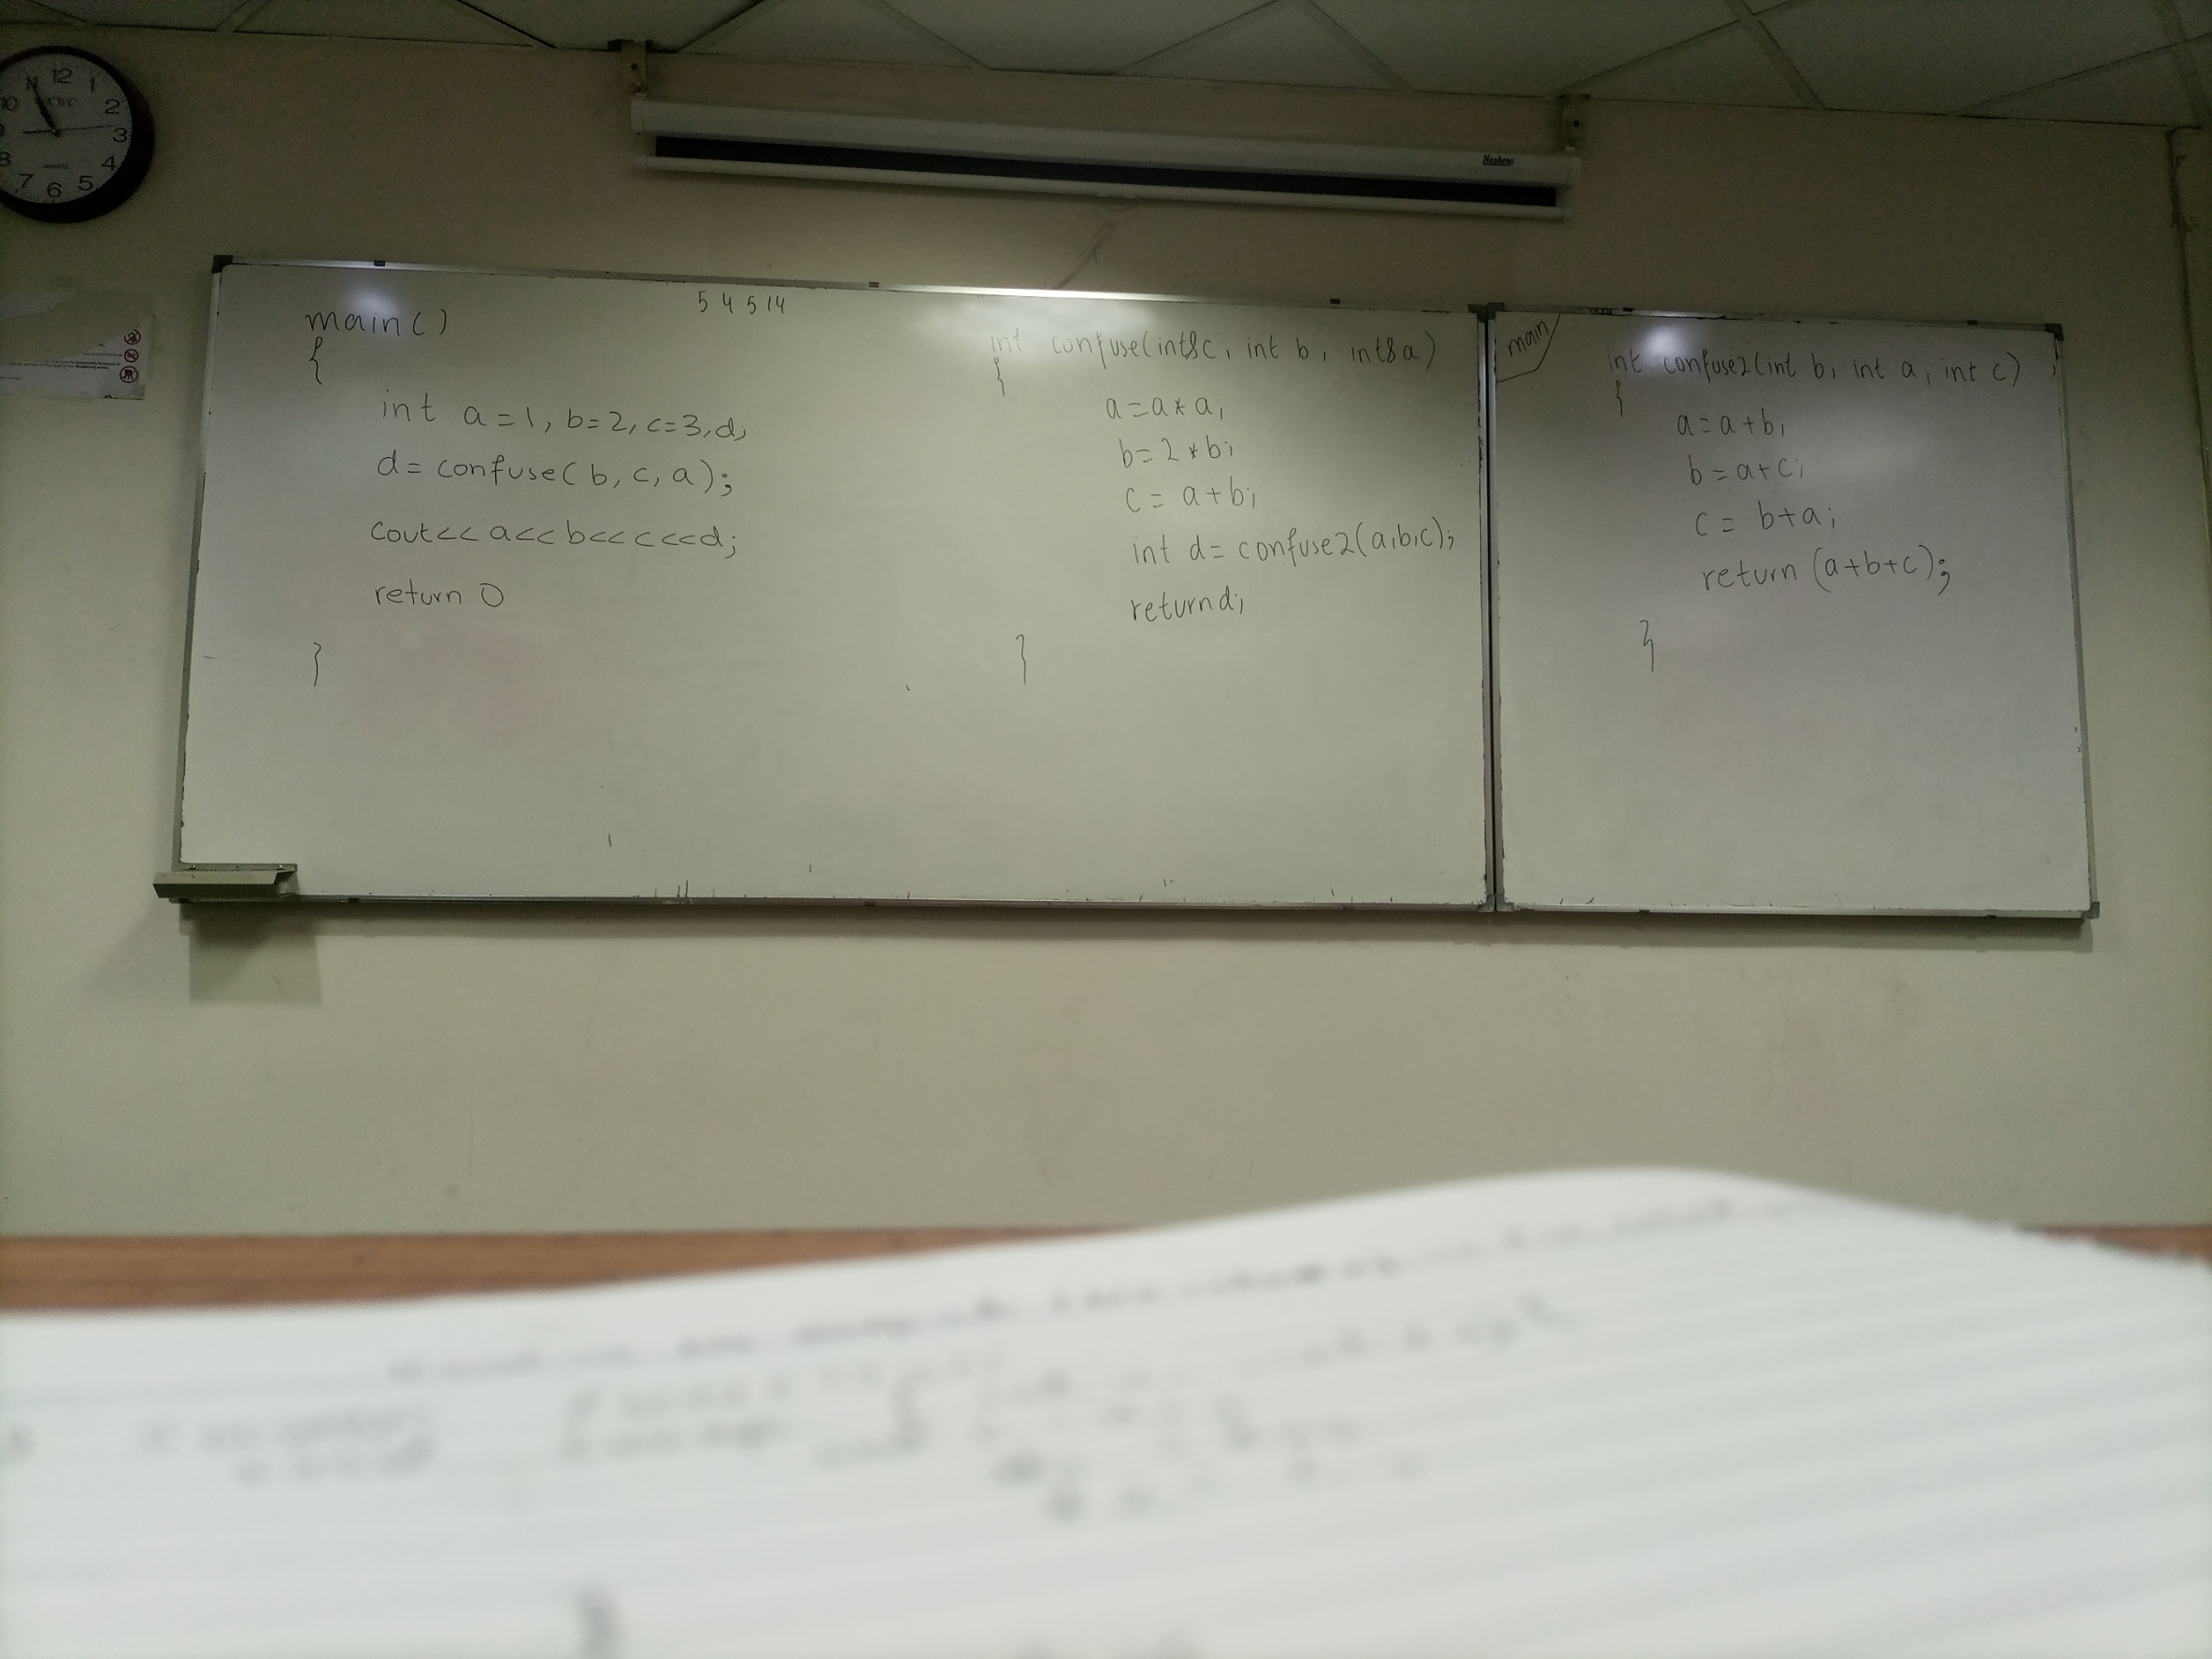 12 1 2 3 4 5 6 7 8 10 11
5 4 5 14
main()
{
int a=1, b=2, c=3,d;
d= confuse( b, c, a);
cout<< a<< b<< c<<d;
return 0
}
int confuse(int&c, int b, int& a)
{
a=a* a;
b=2 *b;
c= a+b;
int d= confuse2(a,b,c);
return d;
}
main
int confuse2(int b, int a, int c)
{
a=a+b;
b=a+c;
c= b+a;
return (a+b+c);
}